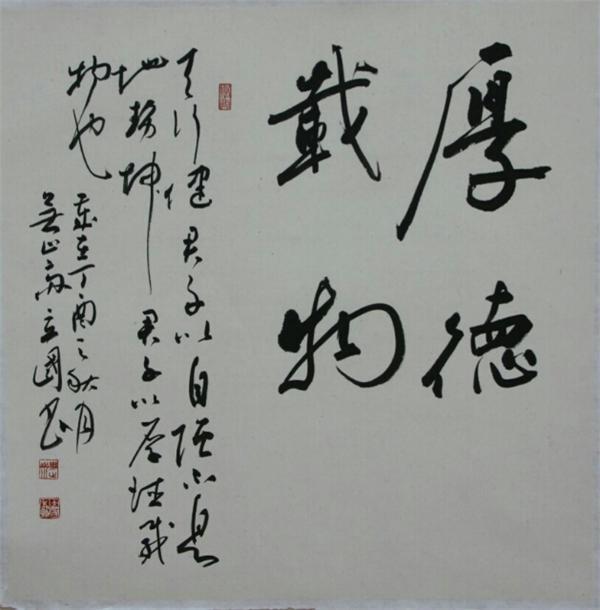 厚德
載物
天行健君子以自强不息
地勢坤君子以厚德載
物也
歲在丁酉之秋月
山立國書